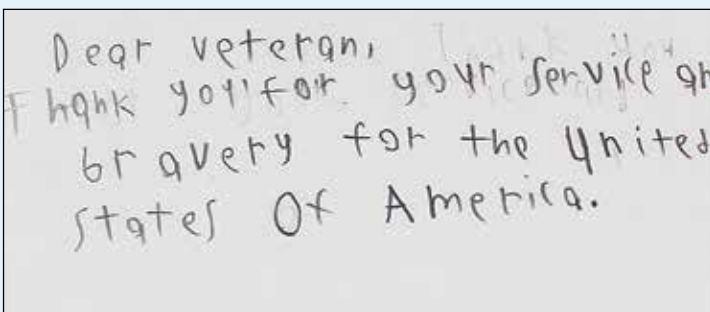 Dear veteran,
Thank you for your service an
bravery for the United
states Of America.